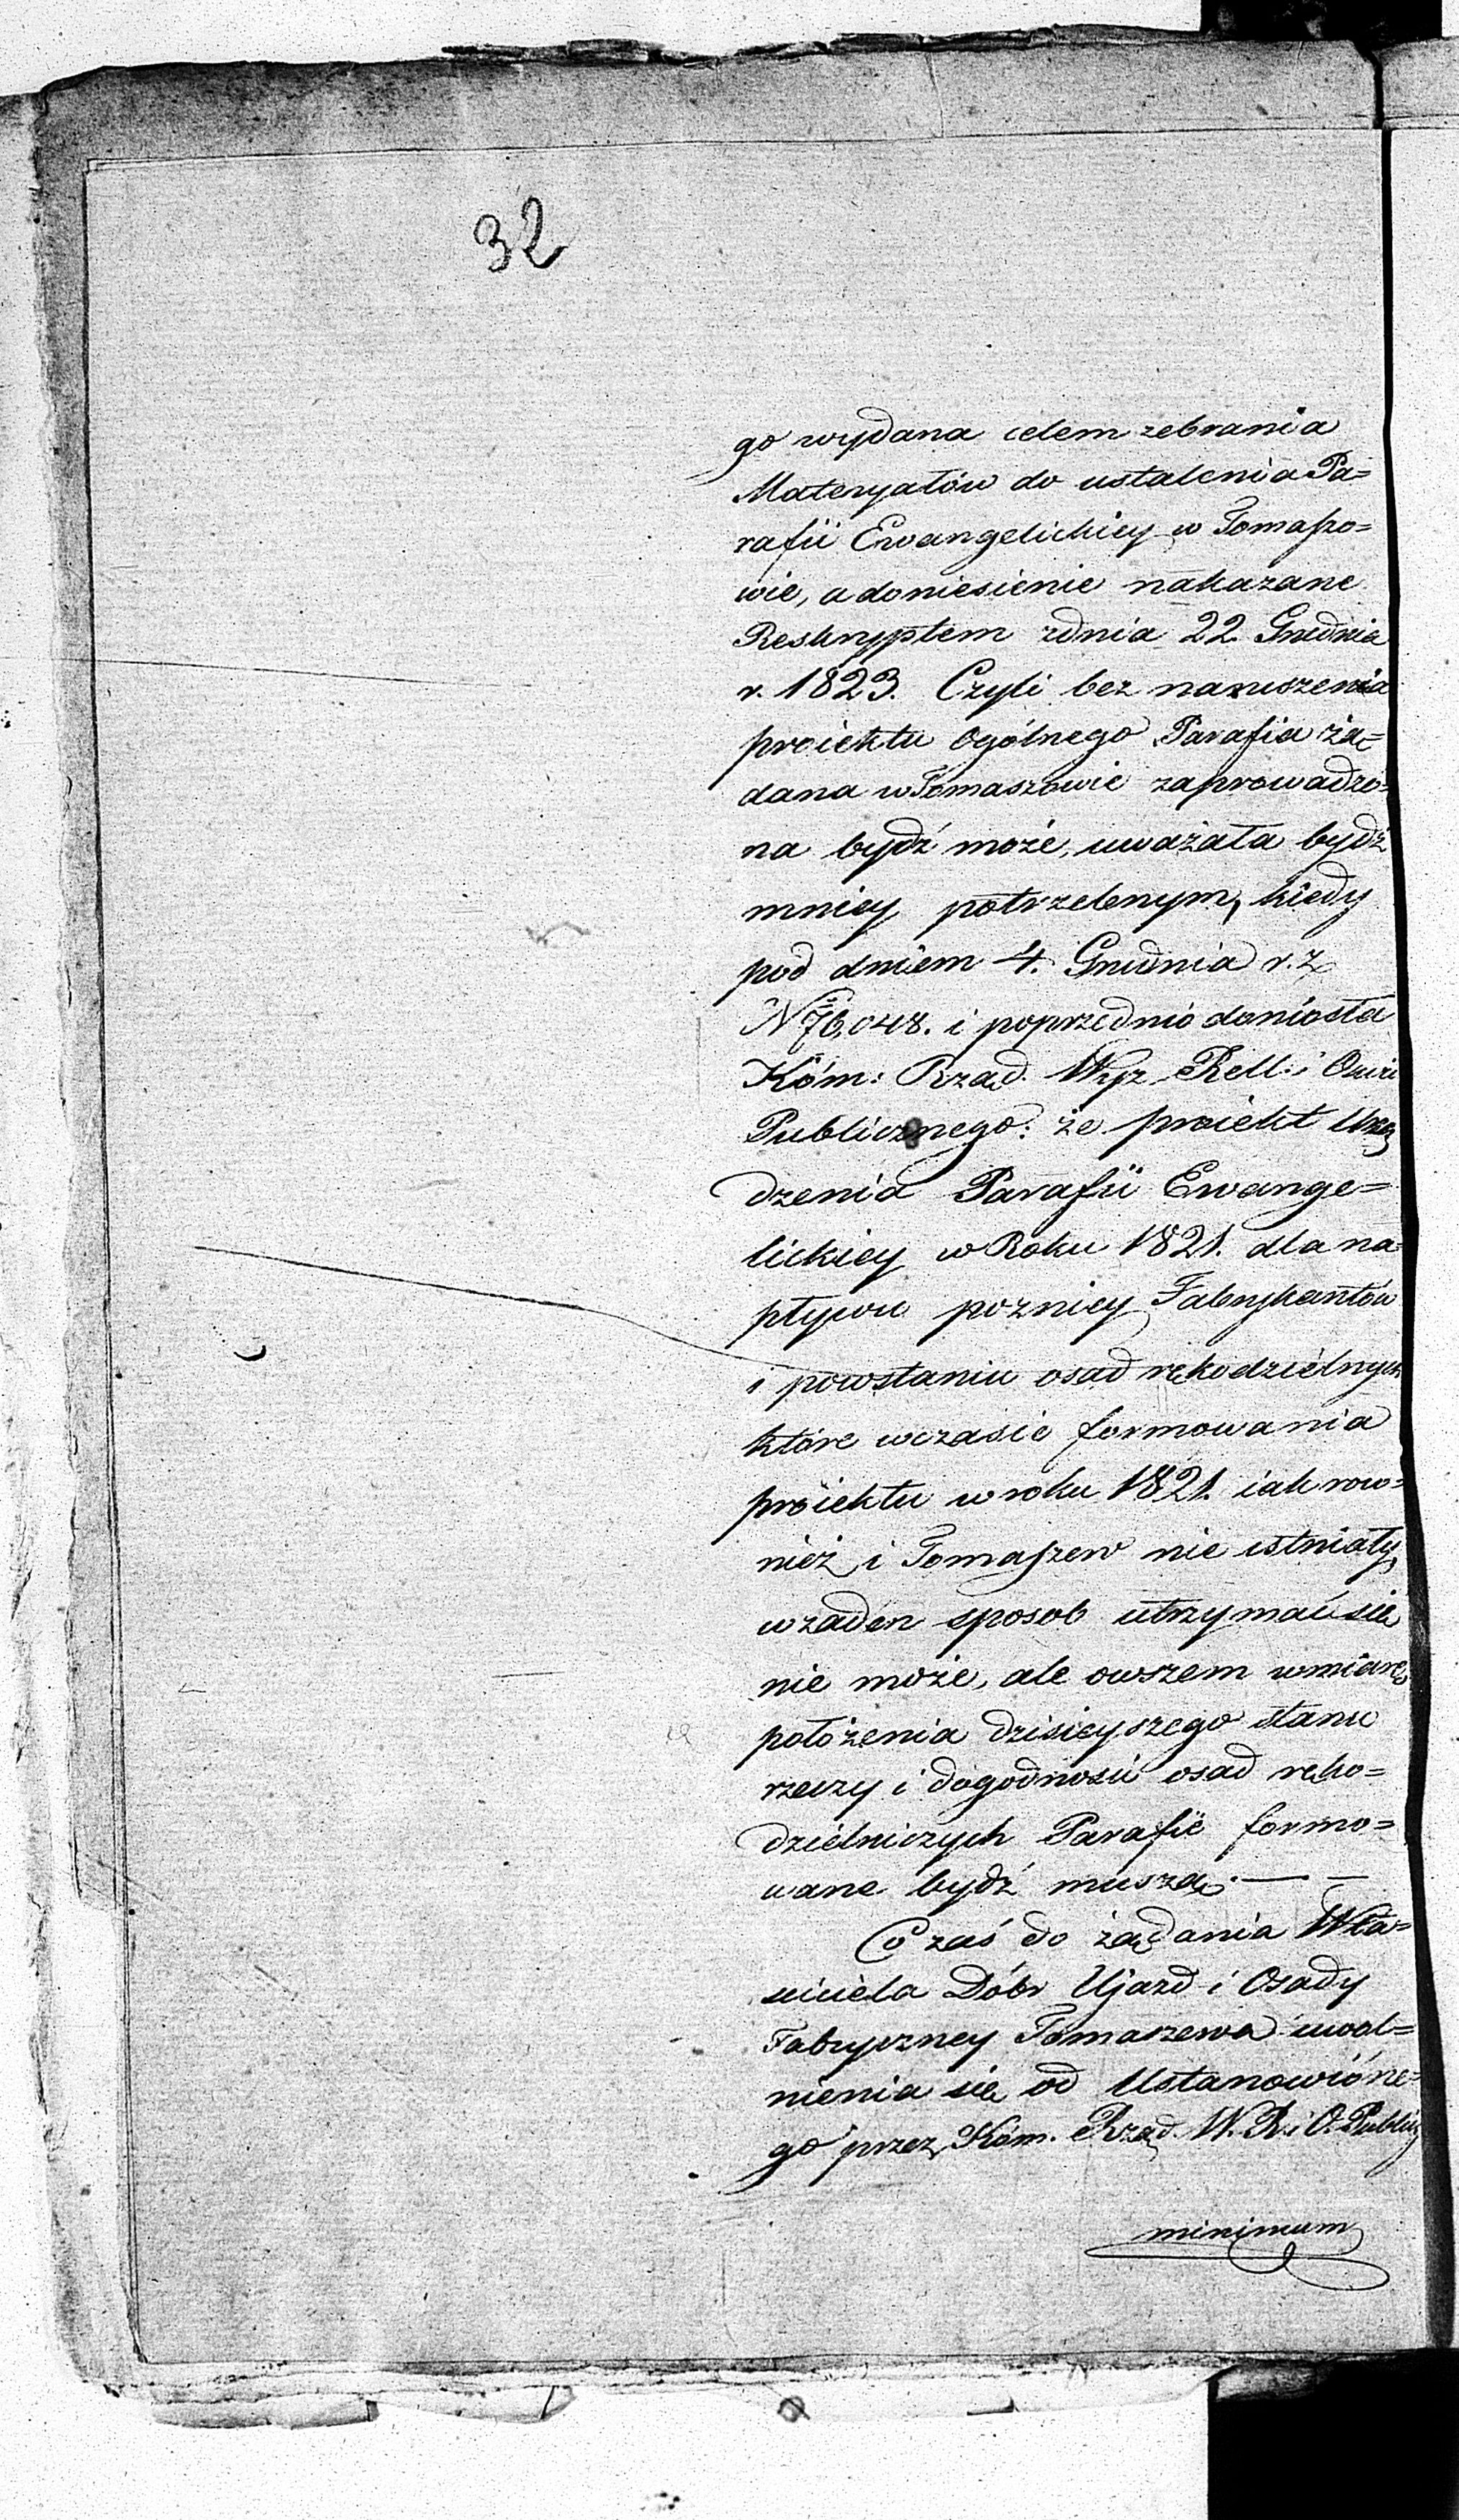 32
go wydana celem zebrania
Materyałów do ustalenia Pa=
rafii Ewangelickiey w Tomaszo=
wie, a doniesienie nakazane
Reskryptem zdnia 22 Grudnia
r. 1823. Czyli bez naruszenia
proiektu ogólnego Parafia żą=
dana w Tomaszowie zaprowadzo=
na bydź może, uważała bydź
mniey potrzebnym, kiedy
pod dniem 4. Grudnia r. z
N 76,048. i poprzednio doniosła
Kóm: Rząd. Wyz. Rell. i Oświ
Publicznego: że proiekt Urzą
dzenia Parafii Ewange=
lickiey w Roku 1821. dla na=
pływu pozniey Fabrykantów
i powstaniu osad rękodzielnych
które wczasie formowania
proiektu w roku 1821. iak row=
nież i Tomaszew nie istniały,
wżaden sposob utrzymać się
nie może, ale owszem wmiarę
położenia dzisieyszego stanu
rzeczy i dogodności osad ręko=
dzielniczych Parafie formo=
wane bydź muszą. — —
Co zaś do żądania Wła=
ściciela Dóbr Ujazd i Osady
Fabryczney Tomaszewa uwol=
nienia się od Ustanowióne=
go przez Kóm. Rząd. W. R. i O. Publicz
minimum